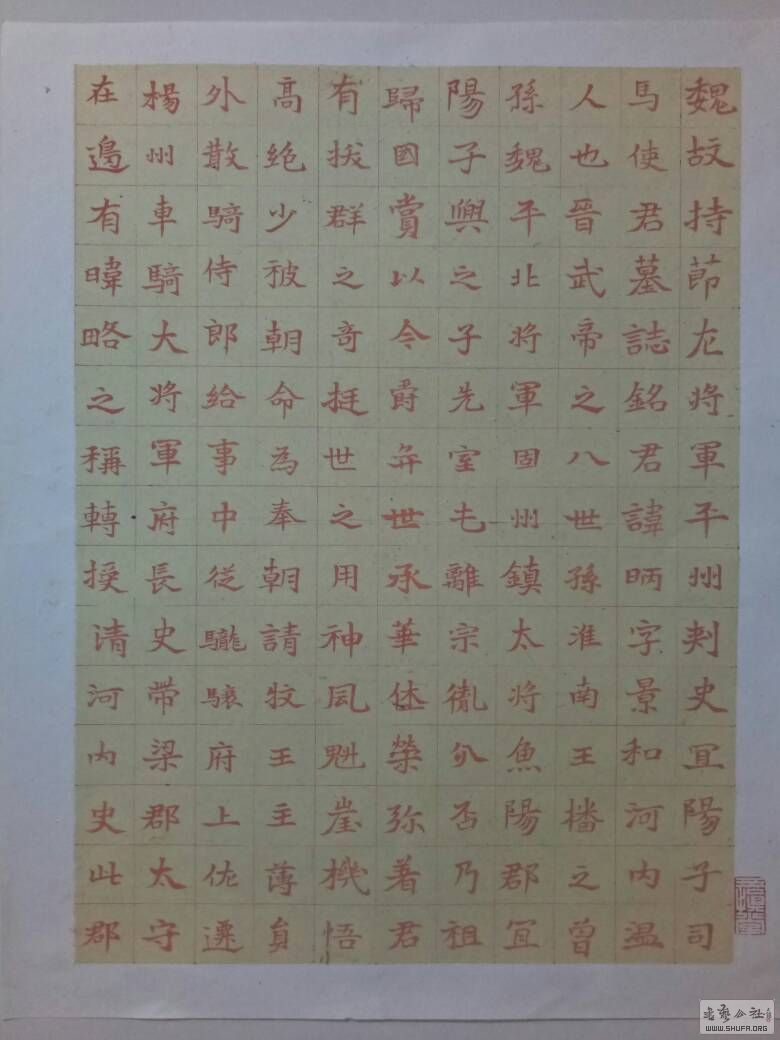 魏故持節左將軍平州刾史冝陽子司
馬使君墓誌銘君諱昞字景和河内温
人也晉武帝之八世孫淮南王播之曾
孫魏平北將軍固州鎮大將魚陽郡冝
陽子興之子先室屯離宗胤分否乃祖
歸國賞以今爵弈世承華休榮弥著君
有拔群之奇挺世之用神風魁崖機悟
高絶少被朝命為奉朝請牧王主薄負
外散騎侍郎給事中從驤府上佐遷
楊州車騎大將軍府長史帶梁郡太守
在邉有暐略之稱轉授清河内史此郡
水墨公社
www.SHUFA.ORG